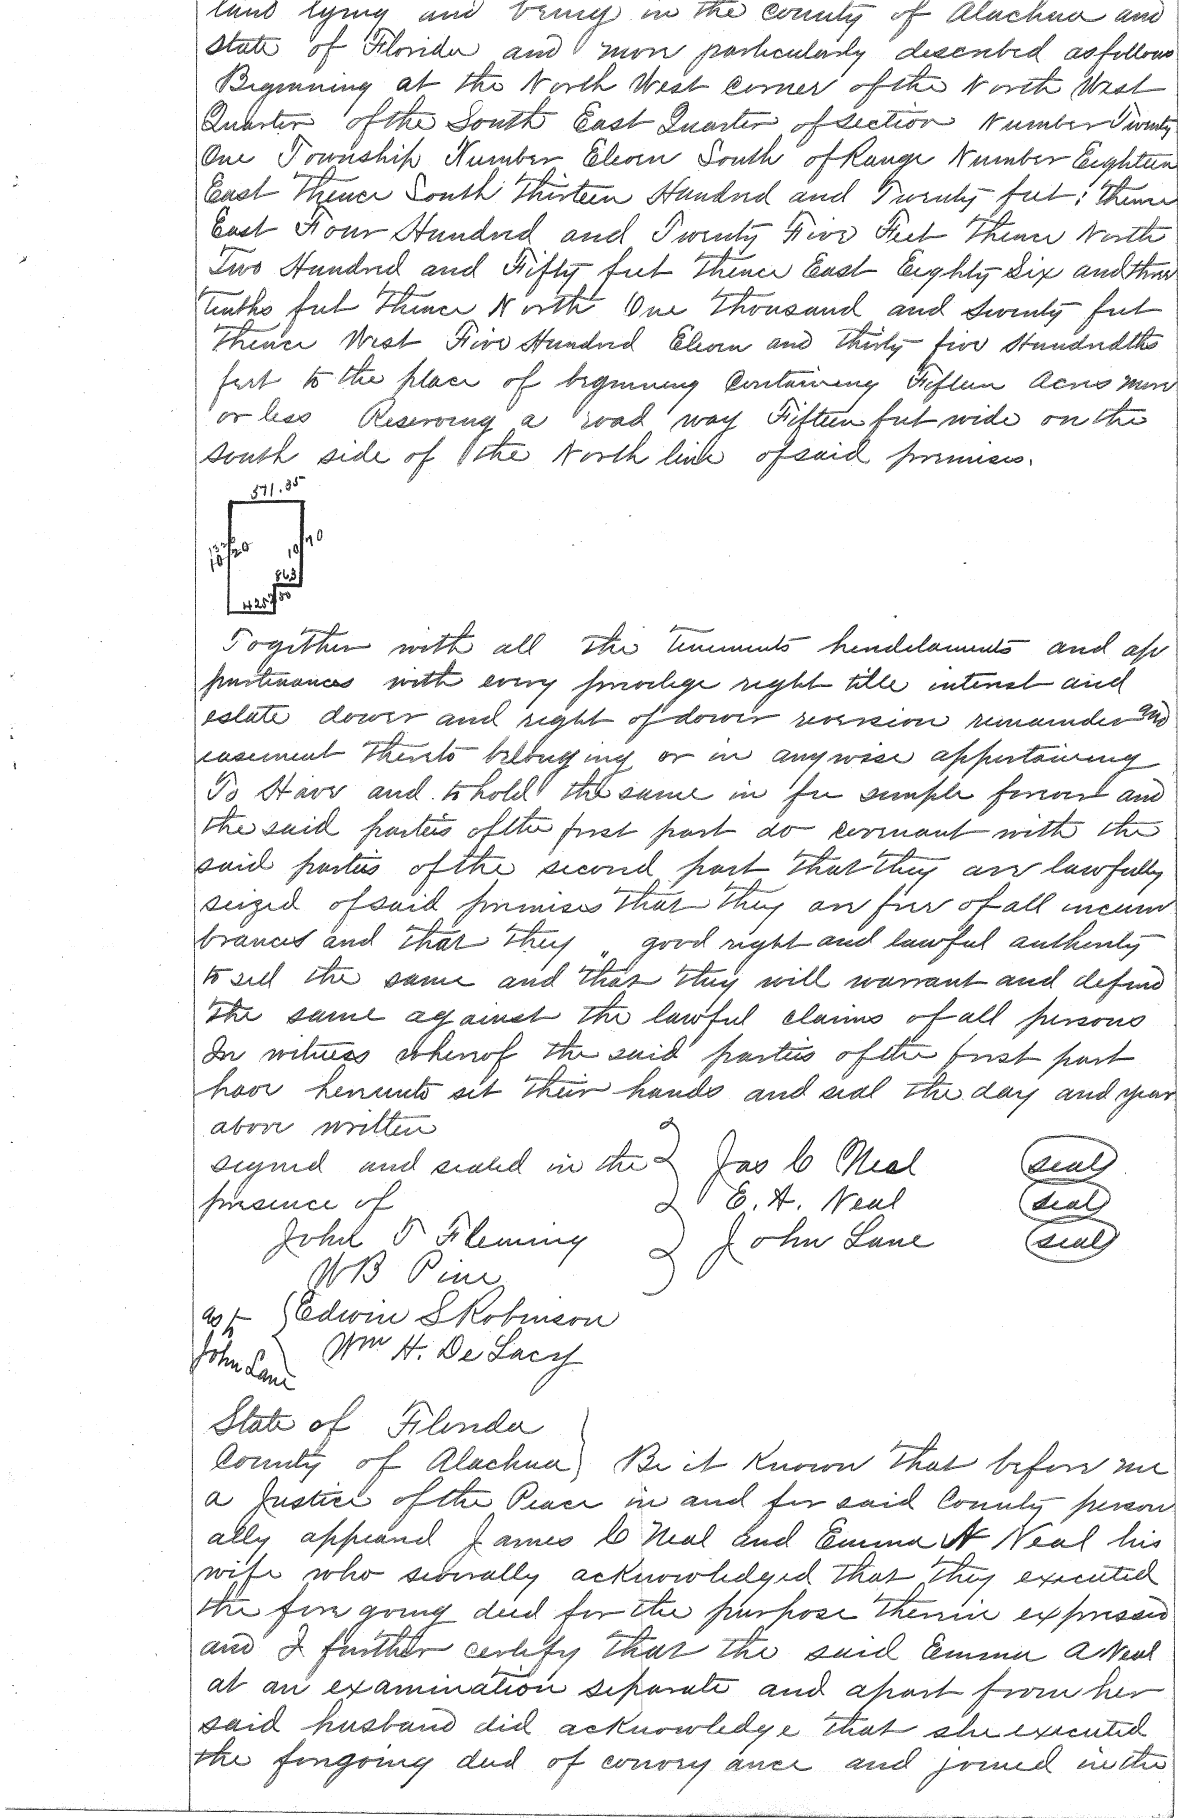 land lying and being in the County of Alachua and
State of Florida and more particularly described as follows
Beginning at the North West corner of the North West
Quarter of the South East Quarter of section Number Twenty
One Township Number Eleven South of Range Number Eighteen
East Thence South Thirteen Hundred and Twenty feet; thence
East Four Hundred and Twenty Five Feet Thence North
Two Hundred and Fifty feet Thence East Eighty Six and three
tenths feet Thence North One Thousand and Seventy feet
Thence West Five Hundred Eleven and thirty five Hundredths
feet to the place of beginning Containing Fifteen Acres more
or less Reserving a road way Fifteen feet wide on the
South side of the North line of said premises.
511.35
20 1070
863
425
Together with all the tenements heridetaments and ap
purtinances with every privilege right title interest and
estate dower and right of dower reversion remainder and
easement thereto belonging or in anywise appertaining
To Have and to hold the same in fee simple forever and
the said parties of the first part do covenant with the
said parties of the second part that they are lawfully
seized of said premises that they are free of all incum
brances and that they " good right and lawful authority
to sell the same and that they will warrant and defend
the same against the lawful claims of all persons
In witness whereof the said parties of the first part
have hereunto set their hands and seal the day and year
above written
signed and sealed in the Jas C Neal seal
presence of E. A. Neal seal
John T Fleming John Lane seal
W B Pine
as to Edwin S Robinson
John Lane Wm H. De Lacy
State of Florida
County of Alachua } Be it Known That before me
a Justice of the Peace in and for said County person
ally appeared James C Neal and Emma A Neal his
wife who severally acknowledged that they executed
the fore going deed for the purpose therein expressed
and I further certify that the said Emma A Neal
at an examination separate and apart from her
said husband did acknowledge that she executed
the forgoing deed of convey ance and joined in the